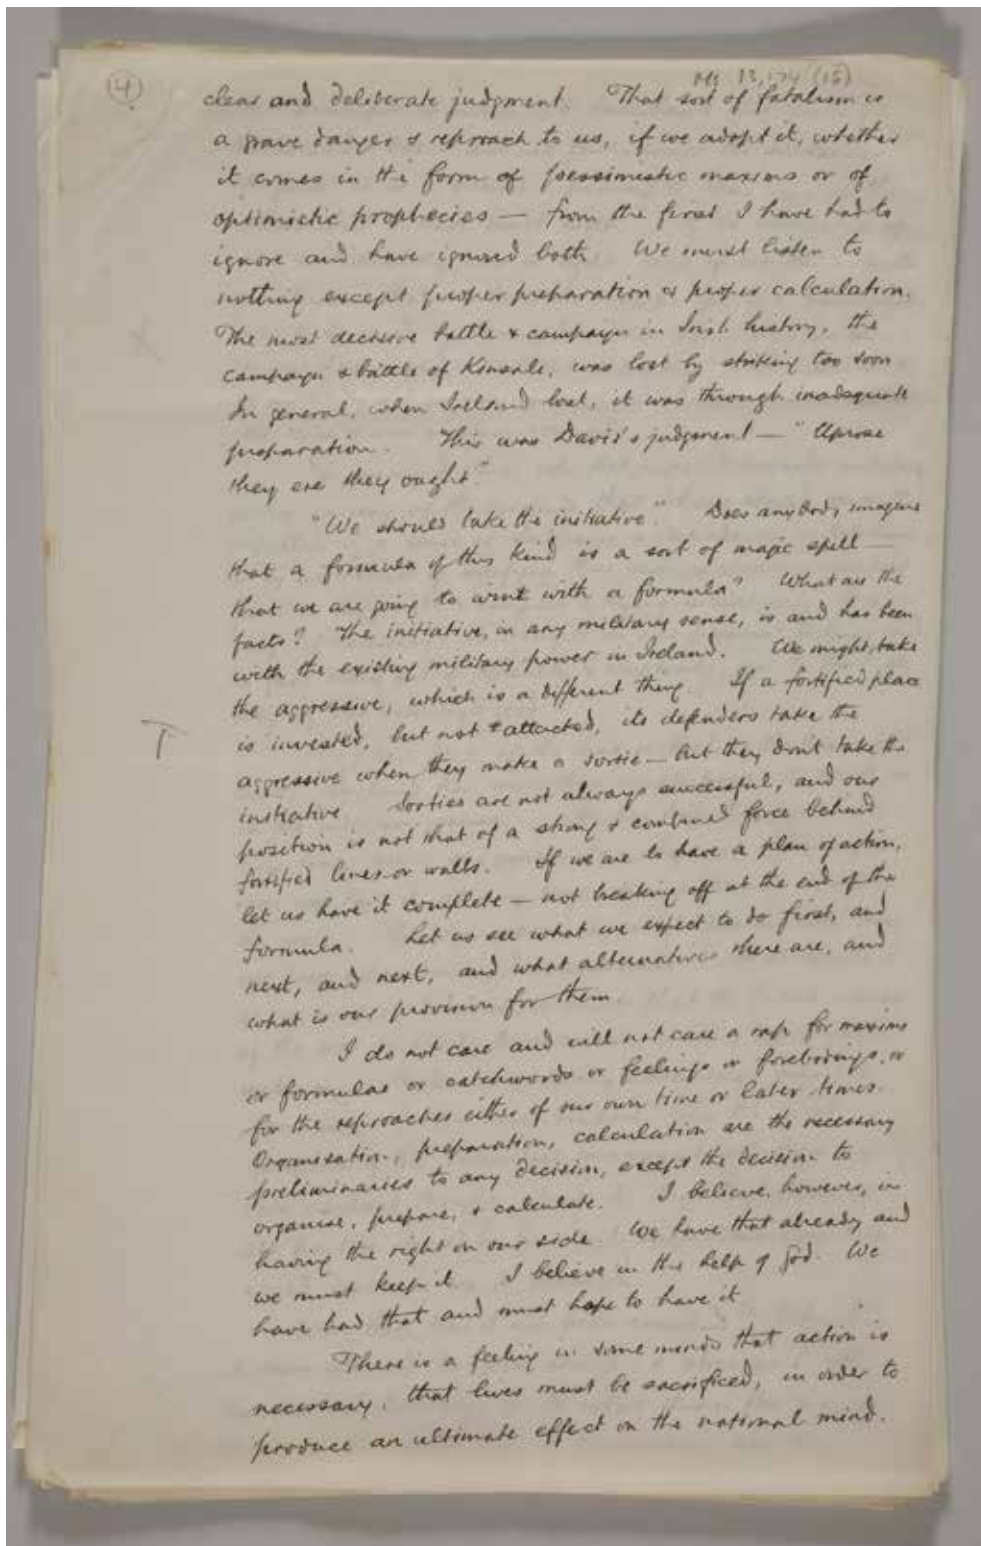 4
MS 13,174 (15)
clear and deliberate judgment. That sort of fatalism is
a grave danger & reproach to us, if we adopt it, whether
it comes in the form of pessimistic maxims or of
optimistic prophecies — from the first I have had to
ignore and have ignored both. We must listen to
nothing except proper preparation & proper calculation.
The most decisive battle & campaign in Irish history, the
campaign & battle of Kinsale, was lost by striking too soon
In general, when Ireland lost, it was through inadequate
preparation. This was Davis's judgment — "Uprose
they ere they ought"
"We should take the initiative". Does anybody imagine
that a formula of this kind is a sort of magic spell —
that we are going to wint with a formula? What are the
facts? The initiative, in any military sense, is and has been
with the existing military power in Ireland. We might take
the aggressive, which is a different thing. If a fortified place
is invested, but not attacked, its defenders take the
aggressive when they make a sortie — but they don't take the
initiative Sorties are not always successful, and our
position is not that of a strong & combined force behind
fortified lines or walls. If we are to have a plan of action,
let us have it complete — not breaking off at the end of the
formula. Let us see what we expect to do first, and
next, and next, and what alternatives there are, and
what is our provision for them.
I do not care and will not care a rap for maxims
or formulas or catchwords or feelings or forebodings, or
for the reproaches either of our own time or later times.
Organisation, preparation, calculation are the necessary
preliminaries to any decision, except the decision to
organise, prepare, & calculate. I believe, however, in
having the right on our side. We have that already and
we must keep it. I believe in the help of God. We
have had that and must hope to have it
There is a feeling in some minds that action is
necessary, that lives must be sacrificed, in order to
produce an ultimate effect on the national mind.